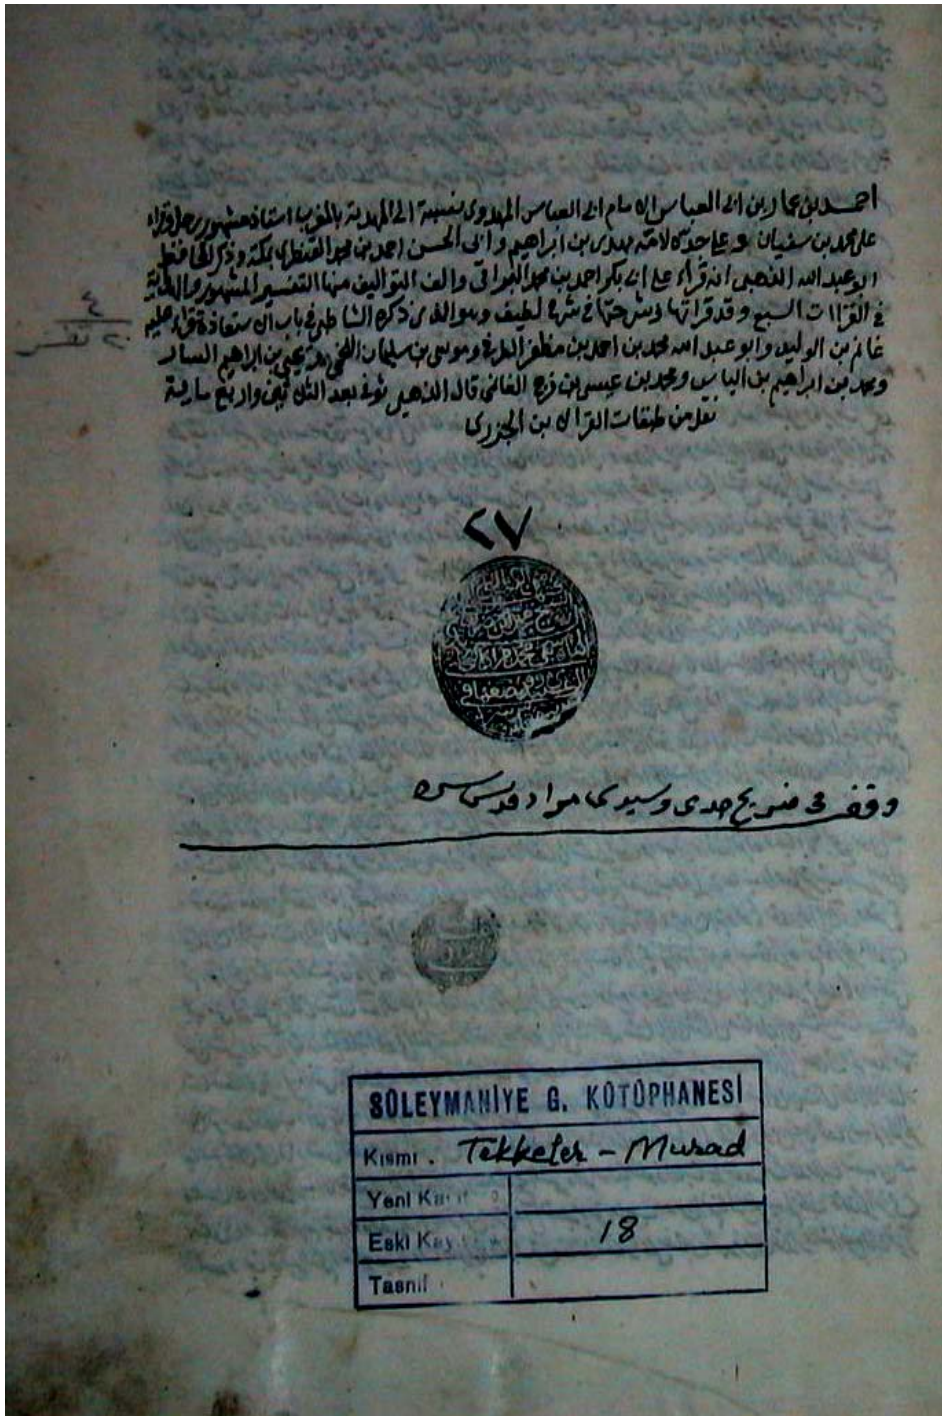 احمد بن عمار بن ابي العباس الامام ابي العباس المهدوي نسبة الى المهدية بالمغرب استاذ مشهور رحل قراء
على محمد بن سفيان و على جده لامه مهدي بن ابراهيم وابي الحسن احمد بن محمد القنطري بمكة وذكر الحافظ
ابو عبد الله الذهبي انه قراء على ابي بكر احمد بن محمد البراثي والف التواليف منها التفسير المشهور والهداية
في القراات السبع وقد قراتها وشرحتها في شرح لطيف وهو الذي ذكره الشاطبي في باب الاستعاذة قراء عليه
غانم بن الوليد وابو عبد الله محمد بن احمد بن مطرف الطرفي وموسى بن سليمان اللخمي ويحيى بن ابراهيم البياز
ومحمد بن ابراهيم بن الياس ومحمد بن عيسى بن فرج المغامي قال الذهبي توفي بعد الثلاثين واربع ماية
نقل من طبقات القرا لابن الجزري
٤
٢٧
وقف في ضريح جدي وسيدي مراد قدس سره
SÜLEYMANİYE G. KÜTÜPHANESİ
Kısmı. Tekkeler - Murad
Yeni Kayıt
Eski Kayıt 18
Tasnif